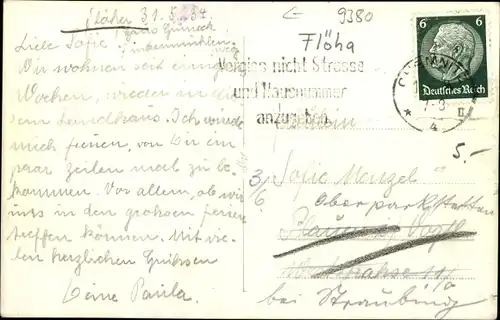 Flöha 31.5.34.
Liebe Sofie!
Wir wohnen seit einigen
Wochen, wieder in
Landhaus. Ich würde
mich freuen, von Dir ein
paar Zeilen mal zu be-
kommen. Vor allem, ob wir
uns in den großen Ferien
treffen können. Mit vie-
len herzlichen Grüssen
Deine Paula.
9380
Flöha
Vergiss nicht Strasse
und Hausnummer
anzugeben
6 6
Deutsches Reich
CHEMNITZ
4
5.-
3/6
Sofie Menzel
Oberparkstetten
Plauen i/Vogtl.
bei Straubing